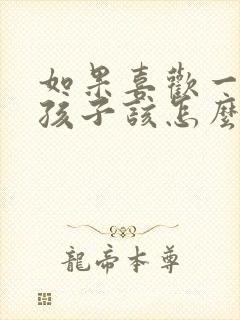 如果喜歡一
孩子該怎麼
龍帝本尊